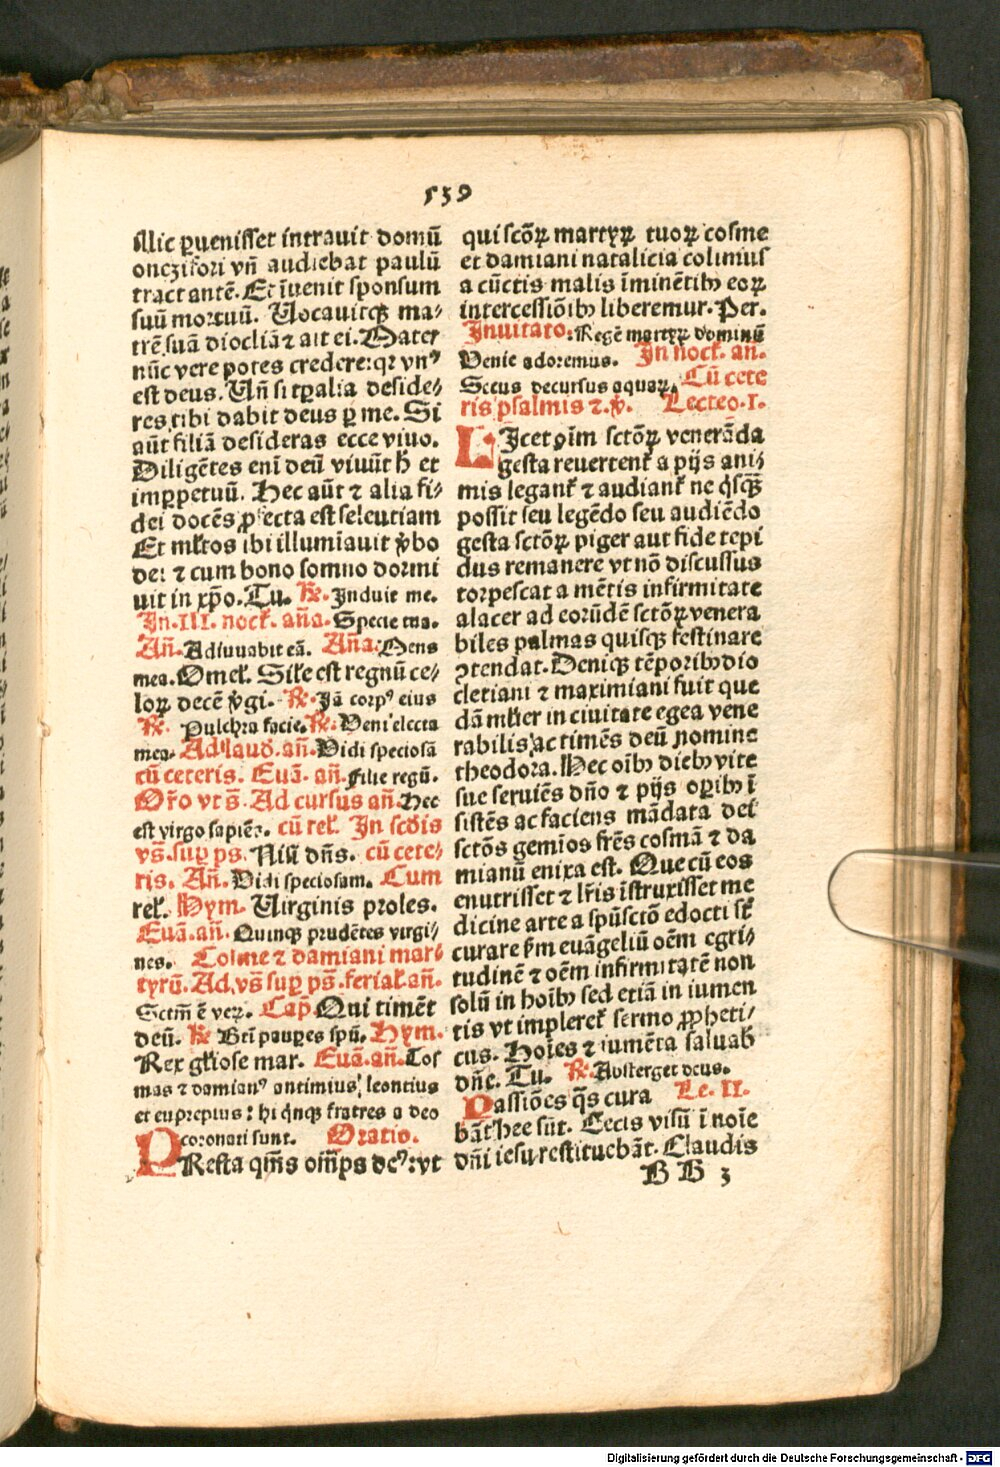 539
illic ꝑuenisset intrauit domū
onczifori vn̄ audiebat paulū
tractantē. Et īuenit sponsum
suū mortuū. Uocauitqꝫ ma⸗
trē suā diocliā ⁊ ait ei. Mater
nūc vere potes credere: qꝛ vnꝰ
est deus. Un̄ si tꝑalia deside⸗
res tibi dabit deus ꝑ me. Si
aūt filiā desideras ecce viuo.
Diligētes eni deū viuūt hͦ et
imꝑpetuū. Hec aūt ⁊ alia fi⸗
dei docēs ꝓfecta est seleutiam
Et ml̓tos ibi illumiauit ꝟbo
dei ⁊ cum bono somno dormi
uit in xp̄o. Tu. ℟. Induit me.
In .III. noct̓. an̄a. Specie tua.
An̄. Adiuuabit eā. An̄a: Mens
mea. Omel̓. Sil̓e est regnū ce⸗
loꝝ decē ꝟgi. ℟. Jā corpꝰ eius
℟. Pulchra facie. ℟. Veni electa
mea. Ad laud̓. an̄. Vidi speciosā
cū ceteris. Euā. an̄. Filie regū.
Or̄o vt s̄. Ad cursus an̄. Hec
est virgo sapiēs. cū rel̓. In scd̄is
vs̄. suꝑ ps. Nisi dn̄s. cū cete⸗
ris. An̄. Vidi speciosam. Cum
rel̓. Hym. Uirginis proles.
Euā. an̄. Quinqꝫ prudētes virgi⸗
nes. Cosme ⁊ damiani mar⸗
tyrū. Ad vs̄ suꝑ ps̄. ferial̓. an̄.
Sctm̄ ē veꝝ. Cap̄. Qui timēt
deū. ℟. Bt̄i pauꝑes spū. Hym.
Rex gl̓iose mar. Euā. an̄. Cos
mas ⁊ damianꝰ antimius, leontius
et euprepius: hi qͥnqꝫ fratres a deo
coronati sunt. Oratio.
PResta qm̄s om̄ps deꝰ: vt
qui sctōꝝ martyꝝ tuoꝝ cosme
et damiani natalicia colimus
a cūctis malis īminētibꝫ eoꝝ
intercessiōibꝫ liberemur. Per.
Inuitato: Regē martyꝝ dominū
Venite adoremus. In noct̓. an.
Secus decursus aquaꝝ. Cū cete
ris psalmis ⁊ ꝟ. Lectio .I.
LIcet ꝓim sctōꝝ venerāda
gesta reuertent̓ a pijs ani⸗
mis legant̓ ⁊ audiant̓ ne qͥsqꝫ̄
possit seu legēdo seu audiēdo
gesta sctōꝝ piger aut fide tepi
dus remanere vt nō discussus
torpescat a mētis infirmitate
alacer ad eorūdē sctōꝝ venera
biles palmas quisqꝫ festinare
ꝯtendat. Deniqꝫ tēporibꝫ dio
cletiani ⁊ maximiani fuit que
dā ml̓ier in ciuitate egea vene
rabilis, ac timēs deū nomine
theodora. Hec oībꝫ diebꝫ vite
sue seruiēs dn̄o ⁊ pijs oꝑibꝫ ī
sistēs ac faciens mādata dei
sctōs gemīos fr̄es cosmā ⁊ da
mianū enixa est. Que cū eos
enutrisset ⁊ lr̄is īstruxisset me
dicine arte a spūsctō edocti st̓
curare ẜm euāgeliū oēm egri⸗
tudinē ⁊ oēm infirmitatē non
solū in hoībꝫ sed etiā in iumen
tis vt impleret̓ sermo ꝓpheti⸗
cus. Hoīes ⁊ iumēta saluab̓
dn̄e. Tu. ℟. Absterget deus.
Passiōes qͣs cura Le. II.
bāt hee sūt. Cecis visū ī noīe
dn̄i iesu restituebāt. Claudis
BB 3
Digitalisierung gefördert durch die Deutsche Forschungsgemeinschaft - DFG